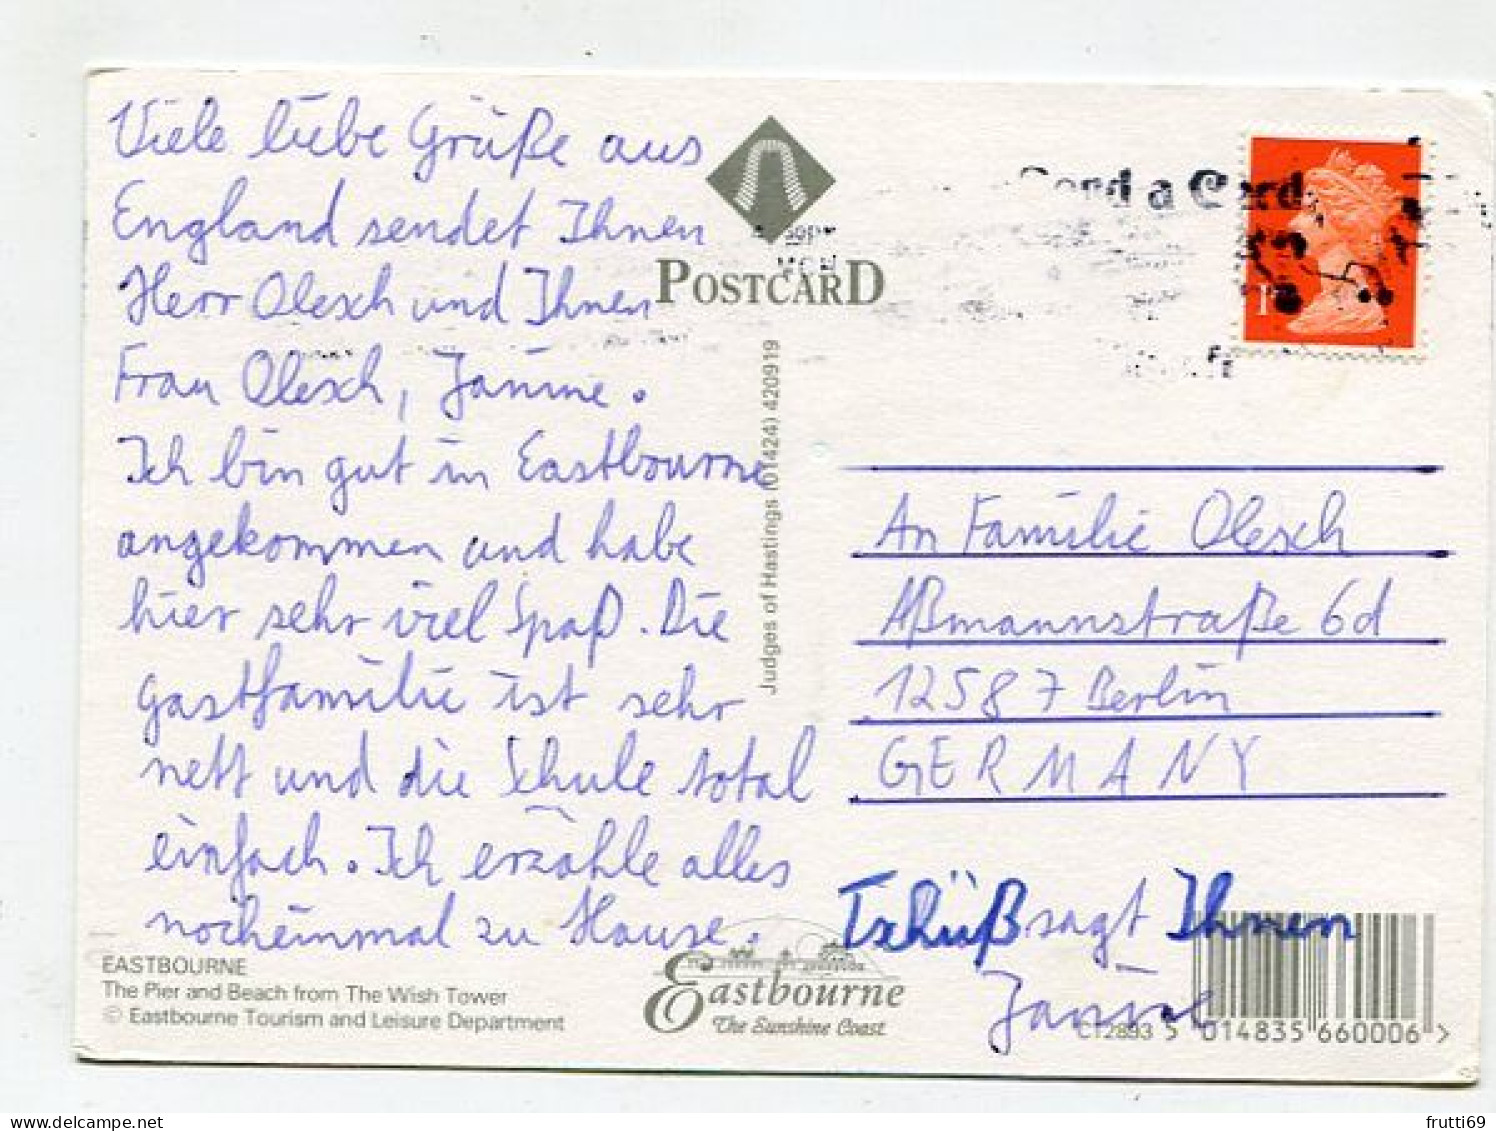 Viele liebe Grüße aus
England sendet Ihnen
Herr Olesch und Ihnen
Frau Olesch, Janine.
Ich bin gut in Eastbourne
angekommen und habe
hier sehr viel Spaß. Die
Gastfamilie ist sehr
nett und die Schule total
einfach. Ich erzähle alles
nocheinmal zu Hause.
EASTBOURNE
The Pier and Beach from The Wish Tower
© Eastbourne Tourism and Leisure Department
POSTCARD
Judges of Hastings (01424) 420919
Eastbourne
The Sunshine Coast
MON
a Card
1st
An Familie Olesch
Aßmannstraße 6d
12587 Berlin
GERMANY
Tschüß sagt Ihnen
Janine
C12893 5 014835 660006 >
delcampe.net
frutti69